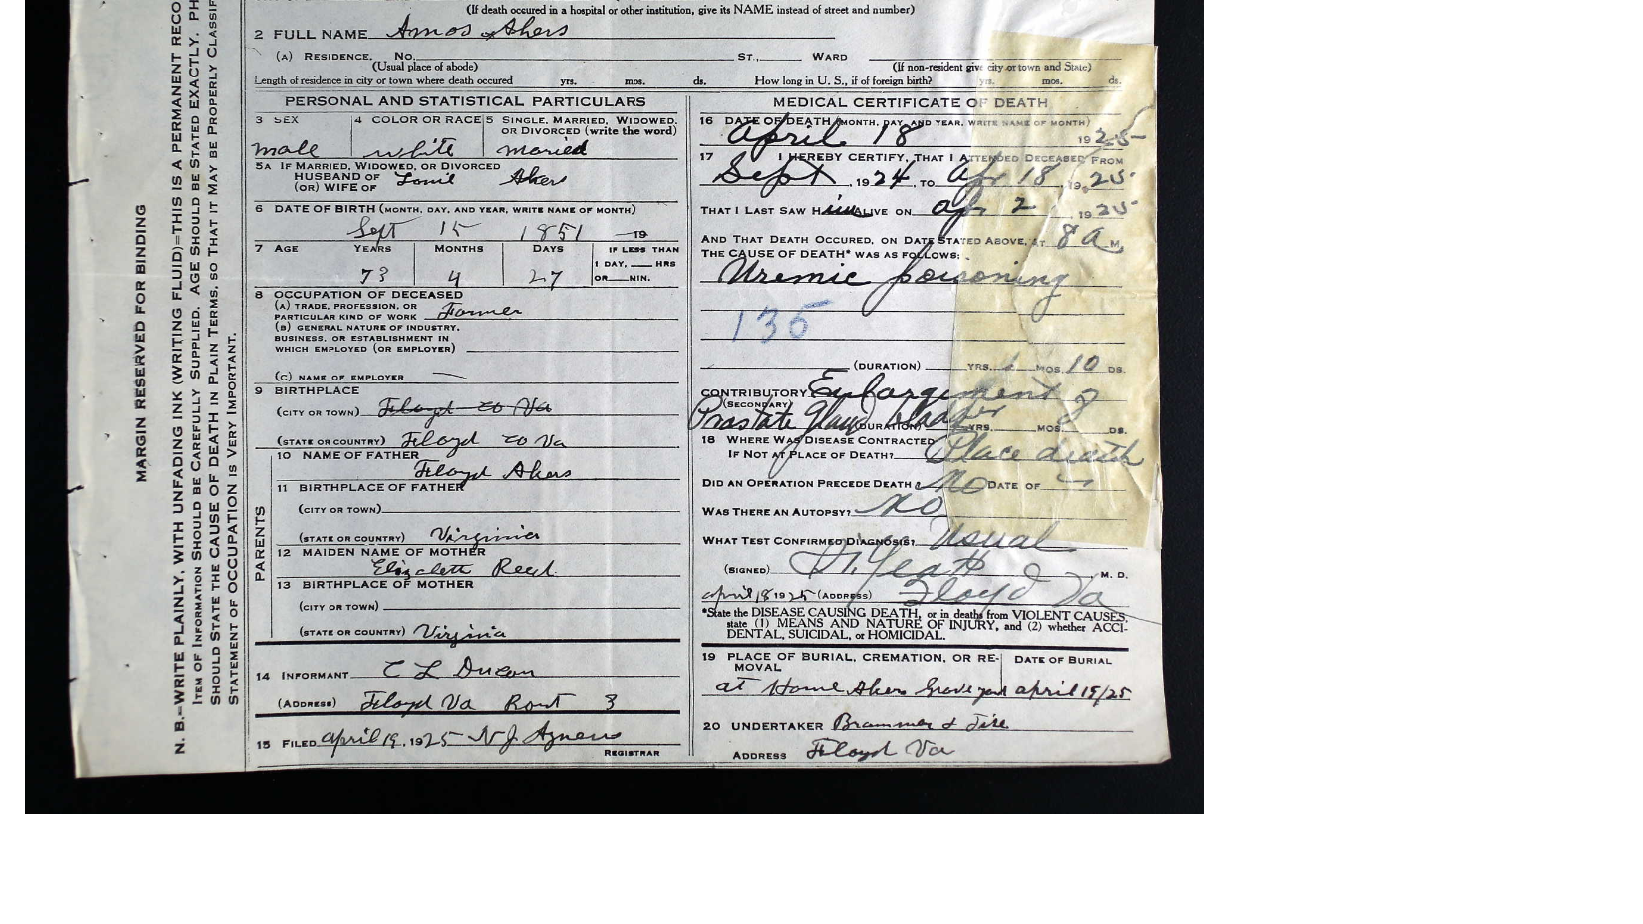 (If death occured in a hospital or other institution, give its NAME instead of street and number)
2 FULL NAME Amos Akers
(A) RESIDENCE. No. ST., WARD
(Usual place of abode) (If non-resident give city or town and State)
Length of residence in city or town where death occured yrs. mos. ds. How long in U. S., if of foreign birth? yrs. mos. ds.
PERSONAL AND STATISTICAL PARTICULARS
3 SEX 4 COLOR OR RACE 5 SINGLE, MARRIED, WIDOWED, OR DIVORCED (write the word)
male white maried
5A IF MARRIED, WIDOWED, OR DIVORCED
HUSBAND OF Akers
(OR) WIFE OF
6 DATE OF BIRTH (MONTH, DAY, AND YEAR, WRITE NAME OF MONTH)
Sept 15 1851 19
7 AGE YEARS MONTHS DAYS IF LESS THAN
1 DAY, HRS
73 4 27 OR MIN.
8 OCCUPATION OF DECEASED
(A) TRADE, PROFESSION, OR
PARTICULAR KIND OF WORK Farmer
(B) GENERAL NATURE OF INDUSTRY,
BUSINESS, OR ESTABLISHMENT IN
WHICH EMPLOYED (OR EMPLOYER)
(C) NAME OF EMPLOYER
9 BIRTHPLACE
(CITY OR TOWN) Floyd co Va
(STATE OR COUNTRY) Floyd co Va
PARENTS
10 NAME OF FATHER
Floyd Akers
11 BIRTHPLACE OF FATHER
(CITY OR TOWN)
(STATE OR COUNTRY) Virginia
12 MAIDEN NAME OF MOTHER
Elizabeth Reed
13 BIRTHPLACE OF MOTHER
(CITY OR TOWN)
(STATE OR COUNTRY) Virginia
14 INFORMANT C L
(ADDRESS) Floyd Va Rout 3
15 FILED April 19, 1925 N J Agnew
REGISTRAR
MEDICAL CERTIFICATE OF DEATH
16 DATE OF DEATH (MONTH, DAY, AND YEAR, WRITE NAME OF MONTH)
April 18 1925
17 I HEREBY CERTIFY, THAT I ATTENDED DECEASED FROM
Sept, 1924, TO Apr 18, 1925
THAT I LAST SAW HIM ALIVE ON ap 2 1925
AND THAT DEATH OCCURED, ON DATE STATED ABOVE, AT 8 A M.
THE CAUSE OF DEATH* WAS AS FOLLOWS:
Uremic poisoning
135
(DURATION) YRS. MOS. 10 DS.
CONTRIBUTORY Enlargement of
(SECONDARY)
Prostate Gland
(DURATION) YRS. MOS. DS.
18 WHERE WAS DISEASE CONTRACTED
IF NOT AT PLACE OF DEATH? Place death
DID AN OPERATION PRECEDE DEATH? No DATE OF
WAS THERE AN AUTOPSY? No
WHAT TEST CONFIRMED DIAGNOSIS? Usual
(SIGNED) M. D.
April 18 1925 (ADDRESS) Floyd Va
*State the DISEASE CAUSING DEATH, or in deaths from VIOLENT CAUSES,
state (1) MEANS AND NATURE OF INJURY, and (2) whether ACCI-
DENTAL, SUICIDAL, or HOMICIDAL.
19 PLACE OF BURIAL, CREMATION, OR RE- DATE OF BURIAL
MOVAL
at Home Akers Grave yard april 19/25
20 UNDERTAKER Brammer &
ADDRESS Floyd Va
MARGIN RESERVED FOR BINDING
N. B.=WRITE PLAINLY, WITH UNFADING INK (WRITING FLUID)=THIS IS A PERMANENT RECO
ITEM OF INFORMATION SHOULD BE CAREFULLY SUPPLIED. AGE SHOULD BE STATED EXACTLY. PH
SHOULD STATE THE CAUSE OF DEATH IN PLAIN TERMS, SO THAT IT MAY BE PROPERLY CLASSIF
STATEMENT OF OCCUPATION IS VERY IMPORTANT.